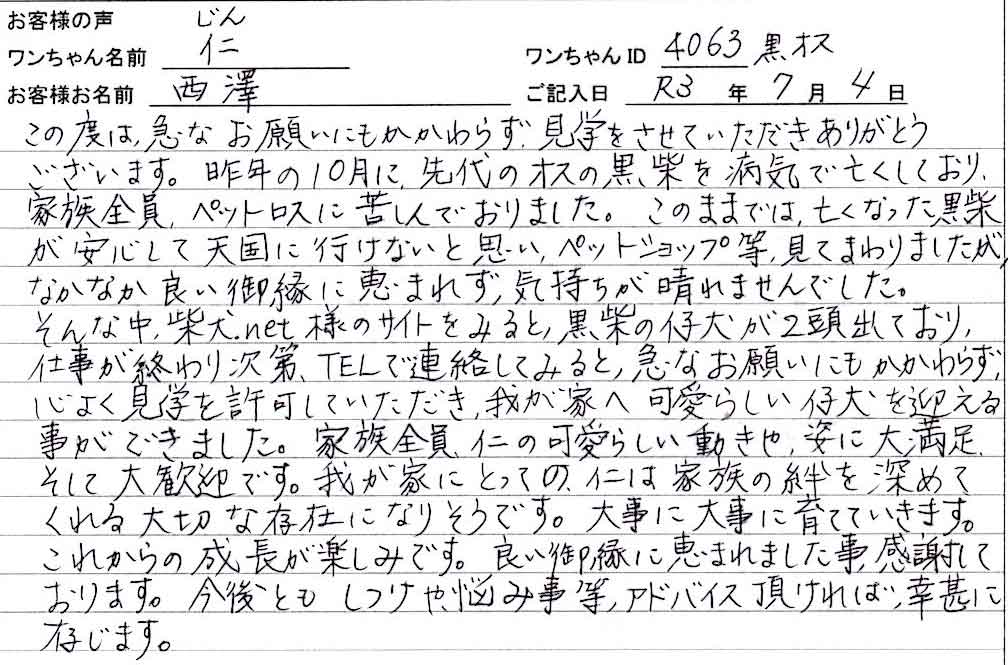 お客様の声 じん
ワンちゃん名前 仁 ワンちゃんID 4063 黒オス
お客様お名前 西澤 ご記入日 R3 年 7 月 4 日
この度は、急な お願いにもかかわらず、見学をさせていただきありがとう
ございます。昨年の10月に、先代のオスの黒柴を病気で亡くしており、
家族全員、ペットロスに苦しんでおりました。このままでは、亡くなった黒柴
が安心して天国に行けないと思い、ペットショップ等、見てまわりましたが、
なかなか良い御縁に恵まれず、気持ちが晴れませんでした。
そんな中、柴犬.net様のサイトをみると、黒柴の仔犬が2頭出ており、
仕事が終わり次第、TELで連絡してみると、急なお願いにもかかわらず、
心よく見学を許可していただき、我が家へ可愛らしい仔犬を迎える
事ができました。家族全員、仁の可愛らしい動きや、姿に大満足、
そして大歓迎です。我が家にとっての、仁は家族の絆を深めて
くれる大切な存在になりそうです。大事に大事に育てていきます。
これからの成長が楽しみです。良い御縁に恵まれました事、感謝して
おります。今後とも しつけや、悩み事等、アドバイス頂ければ、幸甚に
存じます。